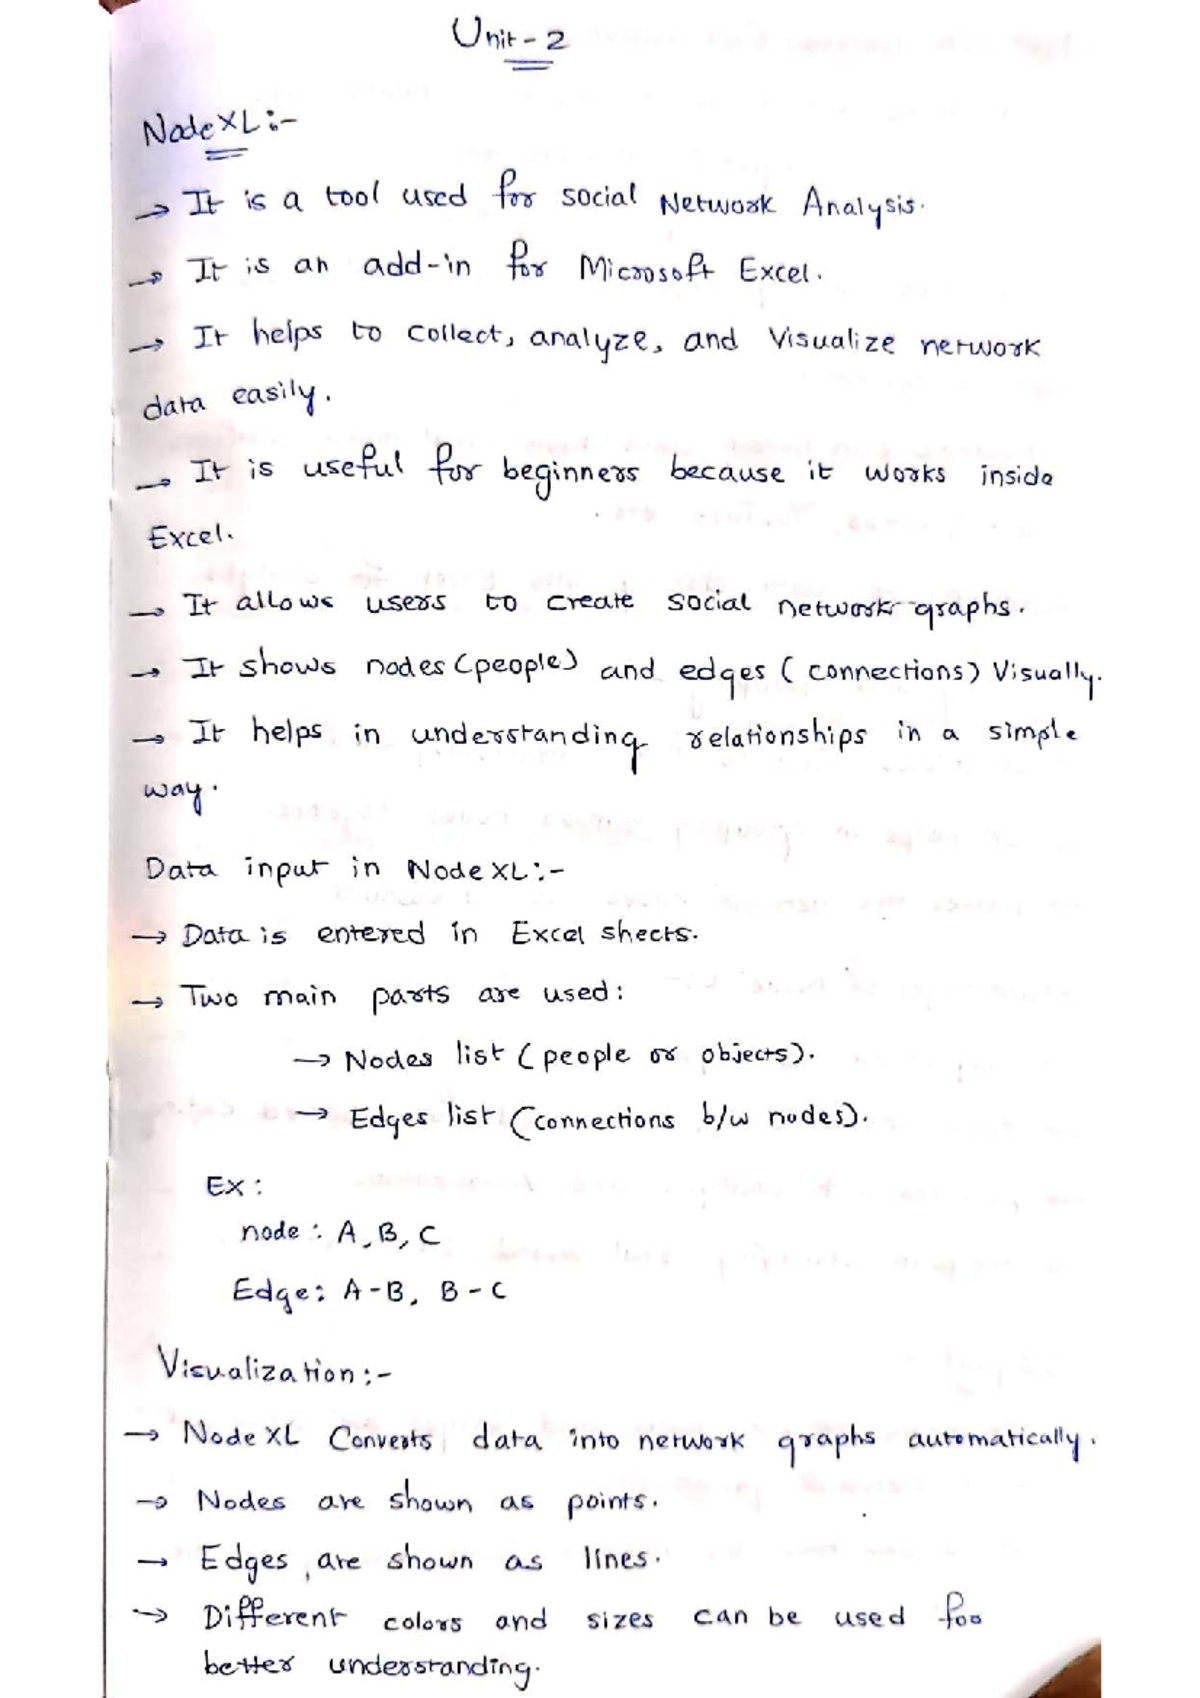 Unit - 2
NodeXL :-
→ It is a tool used for social Network Analysis.
→ It is an add-in for Microsoft Excel.
→ It helps to collect, analyze, and Visualize network
data easily.
→ It is useful for beginners because it works inside
Excel.
→ It allows users to create social network graphs.
→ It shows nodes (people) and edges (connections) Visually.
→ It helps in understanding relationships in a simple
way.
Data input in NodeXL :-
→ Data is entered in Excel sheets.
→ Two main parts are used :
→ Nodes list (people or objects).
→ Edges list (connections b/w nodes).
Ex :
node : A, B, C
Edge : A - B, B - C
Visualization :-
→ NodeXL Converts data into network graphs automatically.
→ Nodes are shown as points.
→ Edges are shown as lines.
→ Different colors and sizes can be used for
better understanding.